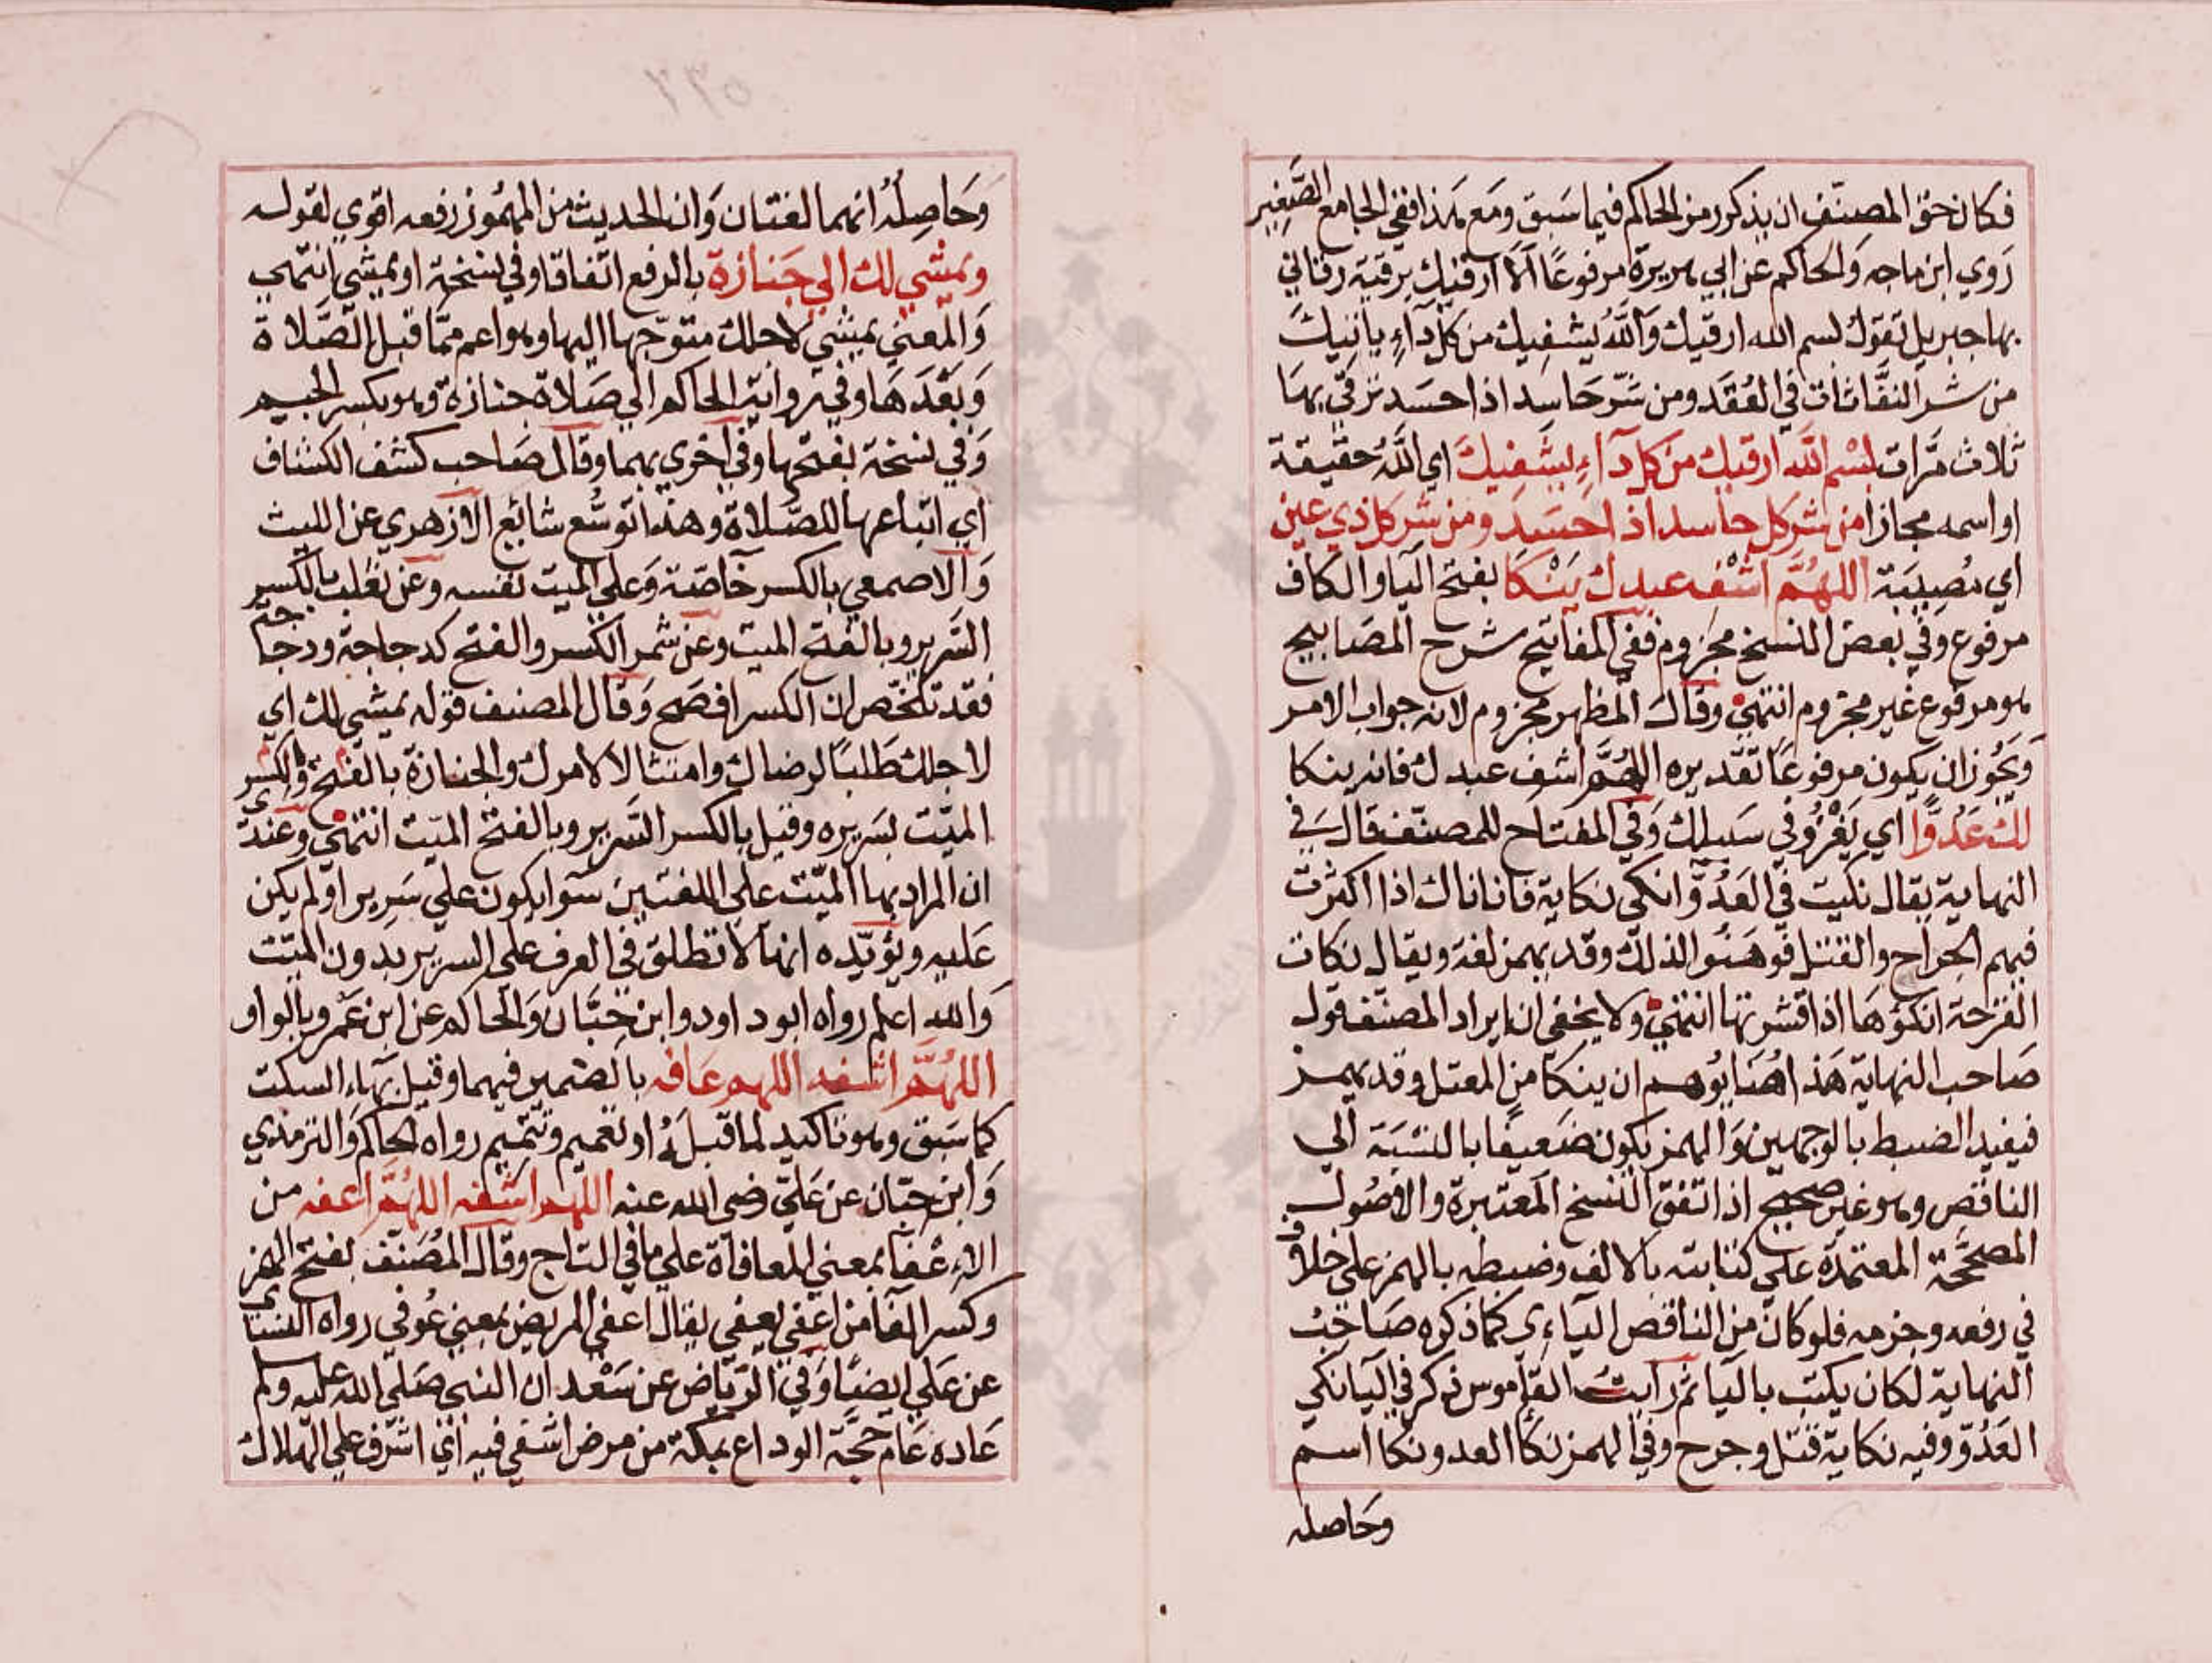 فكان حق المصنف ان يذكر رمز الحاكم فيما سبق ومع هذا ففي الجامع الصغير
روي ابن ماجه والحاكم عن ابي هريرة مرفوعا الا ارقيك برقية رقاني
بها جبريل تقول بسم الله ارقيك والله يشفيك من كل داء ياتيك
من شر النفاثات في العقد ومن شر حاسد اذا حسد ترقي بها
ثلاث مرات بسم الله ارقيك من كل داء يشفيك اي الله حقيقة
او اسمه مجازا من شر كل حاسد اذا حسد ومن شر كل ذي عين
اي مصيبة اللهم اشف عبدك ينكا بفتح اليا والكاف
مرفوع وفي بعض النسخ مجزوم ففي المفاتيح شرح المصابيح
هو مرفوع غير مجزوم انتهي وقال المظهر مجزوم لانه جواب الامر
ويجوز ان يكون مرفوعا تقديره اللهم اشف عبدك فانه ينكا
لك عدوا اي يغزو في سبيلك وفي المفتاح للمصنف قال في
النهاية يقال نكيت في العدو انكي نكاية فانا ناك اذا اكثرت
فيهم الجراح والقتل فوهنوا لذلك وقد يهمز لغة ويقال نكات
القرحة انكؤها اذا قشرتها انتهي ولا يخفي ان ايراد المصنف قول
صاحب النهاية هذا هنا يوهم ان ينكا من المعتل وقد يهمز
فيفيد الضبط بالوجهين والهمز يكون ضعيفا بالنسبة الي
الناقص وهو غير صحيح اذ اتفق النسخ المعتبرة والاصول
المصححة المعتمدة علي كتابته بالالف وضبطه بالهمز علي خلاف
في رفعه وجزمه فلو كان من الناقص الياءي كما ذكره صاحب
النهاية لكان يكتب باليا ثم رايت القاموس ذكر في اليا نكي
العدو وفيه نكاية قتل وجرح وفي الهمز نكا العدو نكا اسم
وحاصله
وحاصله انهما لغتان وان الحديث من المهموز رفعه اقوي لقوله
ويمشي لك الي جنازة بالرفع اتفاقا وفي نسخة او يمشي انتهي
والمعني يمشي لاجلك متوجها اليها وهو اعم مما قبل الصلاة
وبعدها وفي رواية الحاكم الي صلاة جنازة وهو بكسر الجيم
وفي نسخة بفتحها وفي اخري بهما وقال صاحب كشف الكشاف
اي اتباعها للصلاة وهذا توسع شائع الازهري عن الليث
والاصمعي بالكسر خاصة وعلي الميت نفسه وعن ثعلب بالكسر
السرير وبالفتح الميت وعن شمر الكسر والفتح كدجاجة ودجاجة
فقد تلخص ان الكسر افصح وقال المصنف قوله يمشي لك اي
لاجلك طلبا لرضاك وامتثالا لامرك والجنازة بالفتح والكسر
الميت بسريره وقيل بالكسر السرير وبالفتح الميت انتهي وعندي
ان المراد بها الميت علي اللغتين سوا يكون علي سرير او لم يكن
عليه ويؤيده انها لا تطلق في العرف علي السرير بدون الميت
والله اعلم رواه ابو داود وابن حبان والحاكم عن ابن عمرو بالواو
اللهم اشفه اللهم عافه بالضمير فيهما وقيل بهاء السكت
كما سبق وهو تاكيد لما قبله او تعميم وتتميم رواه الحاكم والترمذي
وابن حبان عن علي رضي الله عنه اللهم اشفه اللهم اعفه من
الاعفا بمعني المعافاة علي ما في التاج وقال المصنف بفتح الهمز
وكسر الفا من اعفي يعفي يقال اعفي المريض بمعني عوفي رواه النسائي
عن علي ايضا وفي الرياض عن سعد ان النبي صلي الله عليه وسلم
عاده عام حجة الوداع بمكة من مرض اشفي فيه اي اشرف علي الهلاك